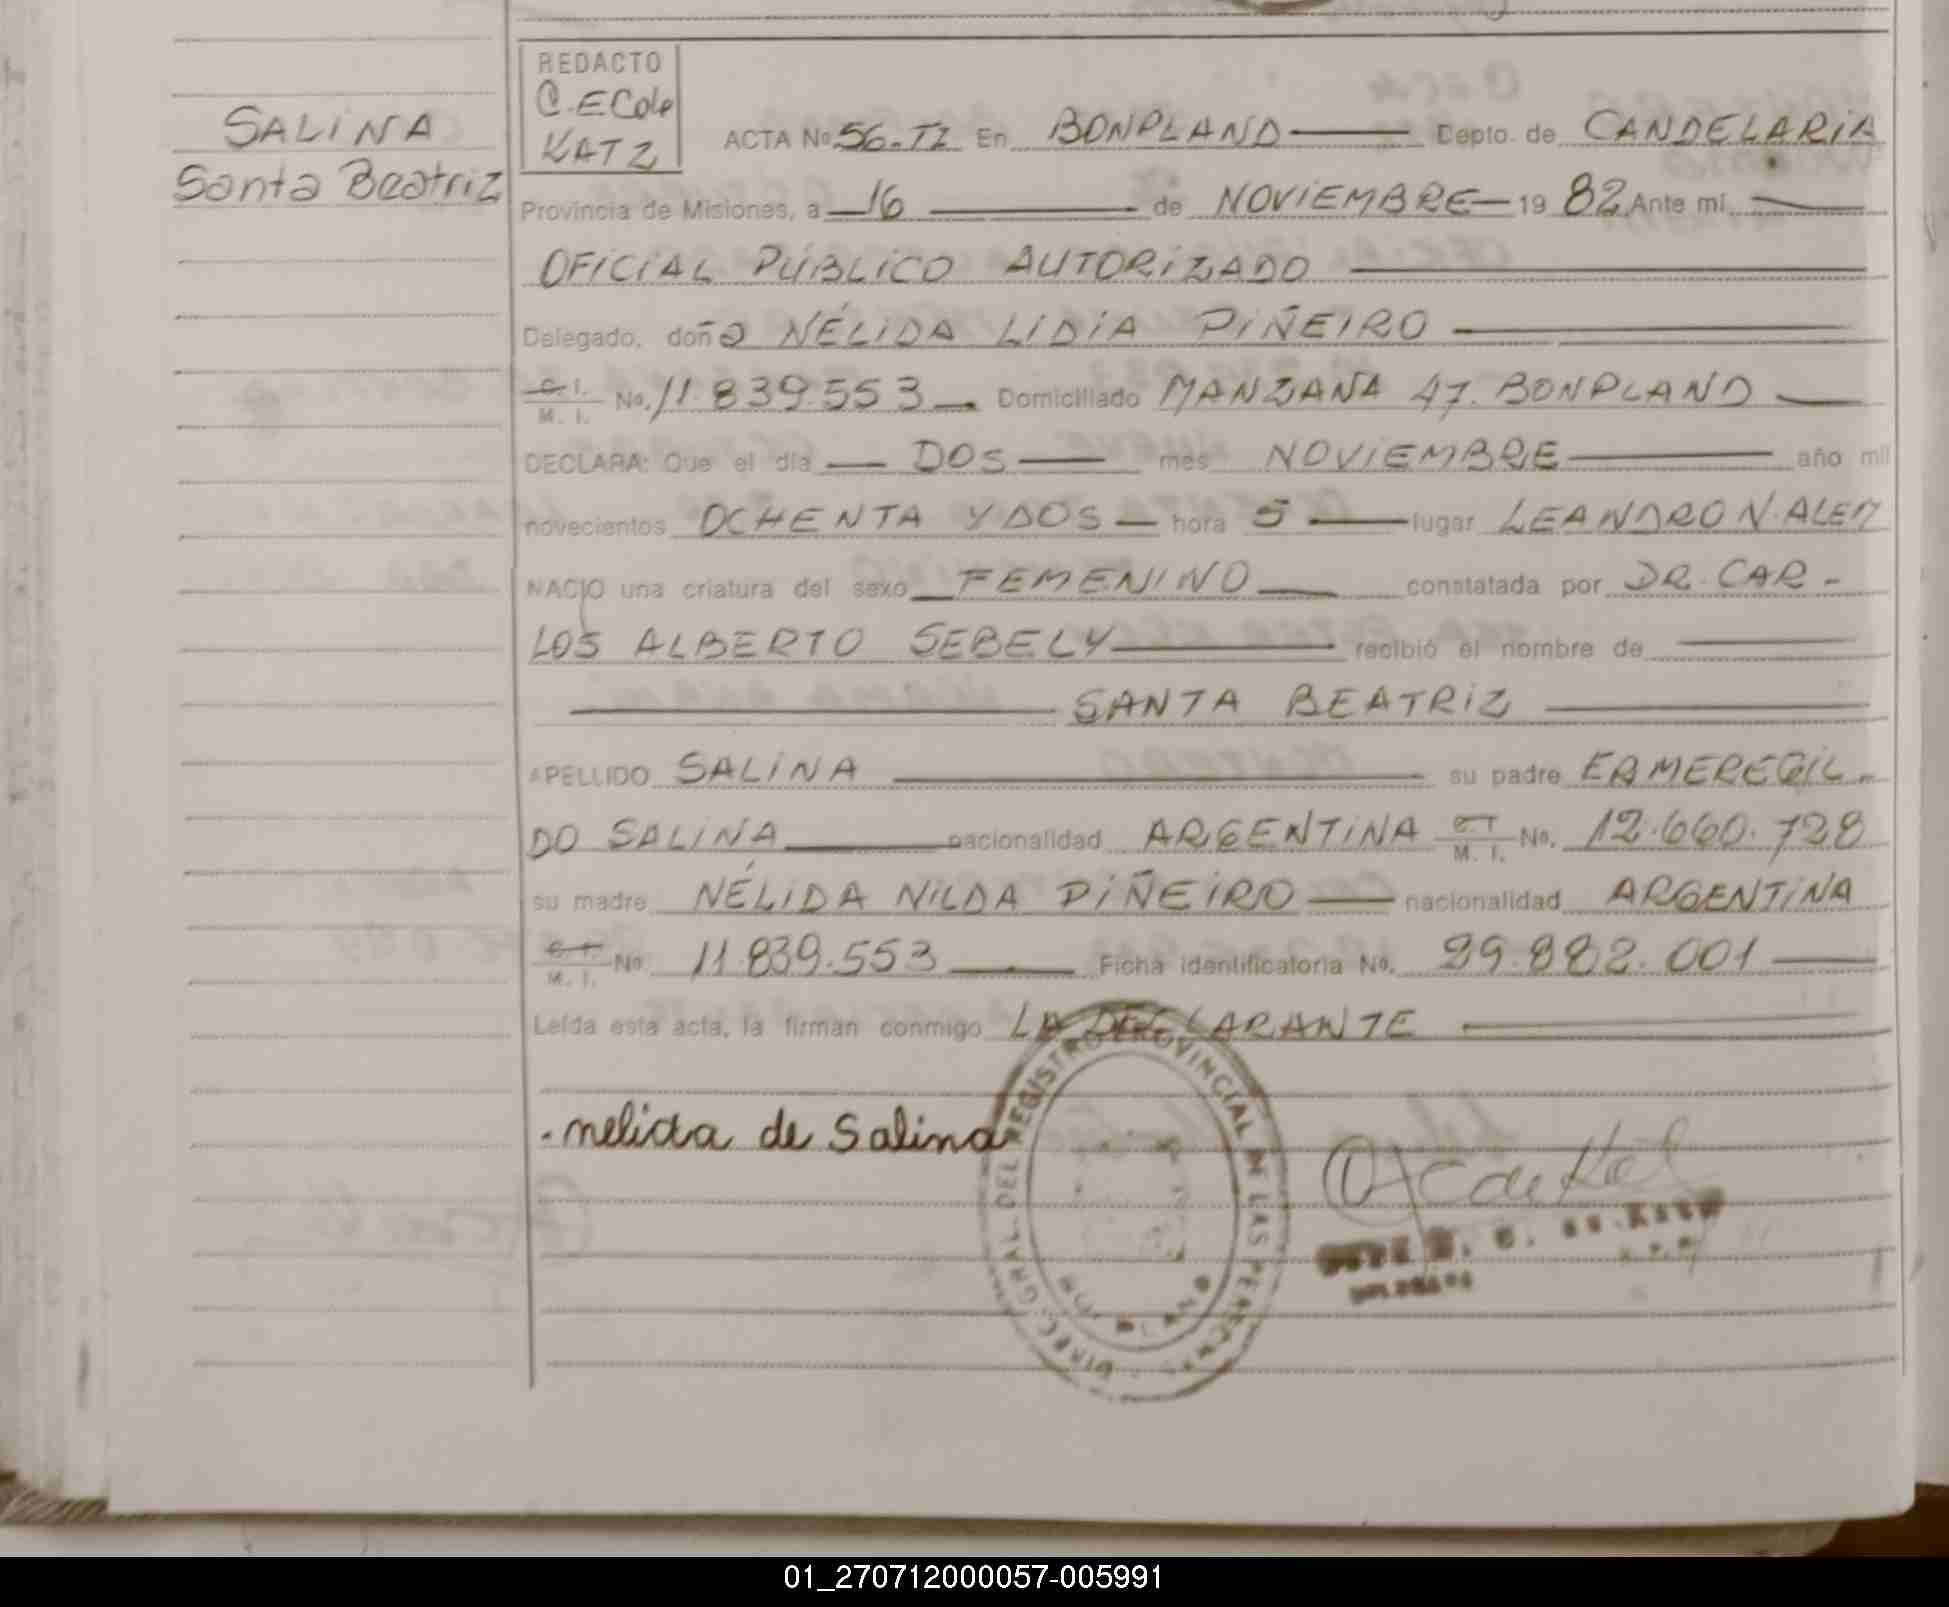 SALINA
Santa Beatriz
REDACTO
C. E Cole
KATZ
ACTA No 56-TI En BONPLAND Depto. de CANDELARIA
Provincia de Misiones, a 16 de NOVIEMBRE 19 82 Ante mí
OFICIAL PÚBLICO AUTORIZADO
Delegado, doña NÉLIDA LIDIA PIÑEIRO
C. I.
M. I. No. 11.839.553 Domiciliado MANZANA 47. BONPLAND
DECLARA: Que el día DOS mes NOVIEMBRE año mil
novecientos OCHENTA Y DOS hora 5 lugar LEANDRO N. ALEM
NACIO una criatura del sexo FEMENINO constatada por DR. CAR-
LOS ALBERTO SEBELY recibió el nombre de
SANTA BEATRIZ
APELLIDO SALINA su padre ERMEREGIL-
DO SALINA nacionalidad ARGENTINA C. I. M. I. No. 12.660.728
su madre NÉLIDA NILDA PIÑEIRO nacionalidad ARGENTINA
C. I.
M. I. No 11.839.553 Ficha identificatoria No. 29.982.001
Leída esta acta, la firman conmigo LA DECLARANTE
nelida de Salina
DIREC. GRAL. DEL REGISTRO PROVINCIAL DE LAS PERSONAS
01_270712000057-005991